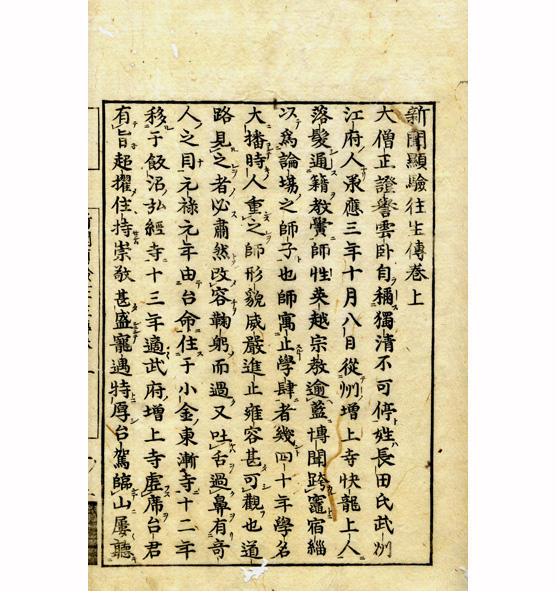 新聞顯驗往生傳卷上
大僧正證譽雲卧自稱獨清不可停姓長田氏武州
江府人承應三年十月八日從州增上寺快龍上人
落髮通籍教黌師性英越宗教逾藍博聞跨竈宿緇
以爲論場之師子也師寓止學肆者幾四十年學名
大播時人重之師形貌威嚴進止雍容甚可觀也道
路見之者必肅然改容鞠躬而過又吐舌過鼻有奇
人之目元祿元年由台命住于小金東漸寺十二年
移于飯沼弘經寺十三年適武府增上寺虛席台君
有旨超擢住持崇敬甚盛寵遇特厚台駕臨山屢聽